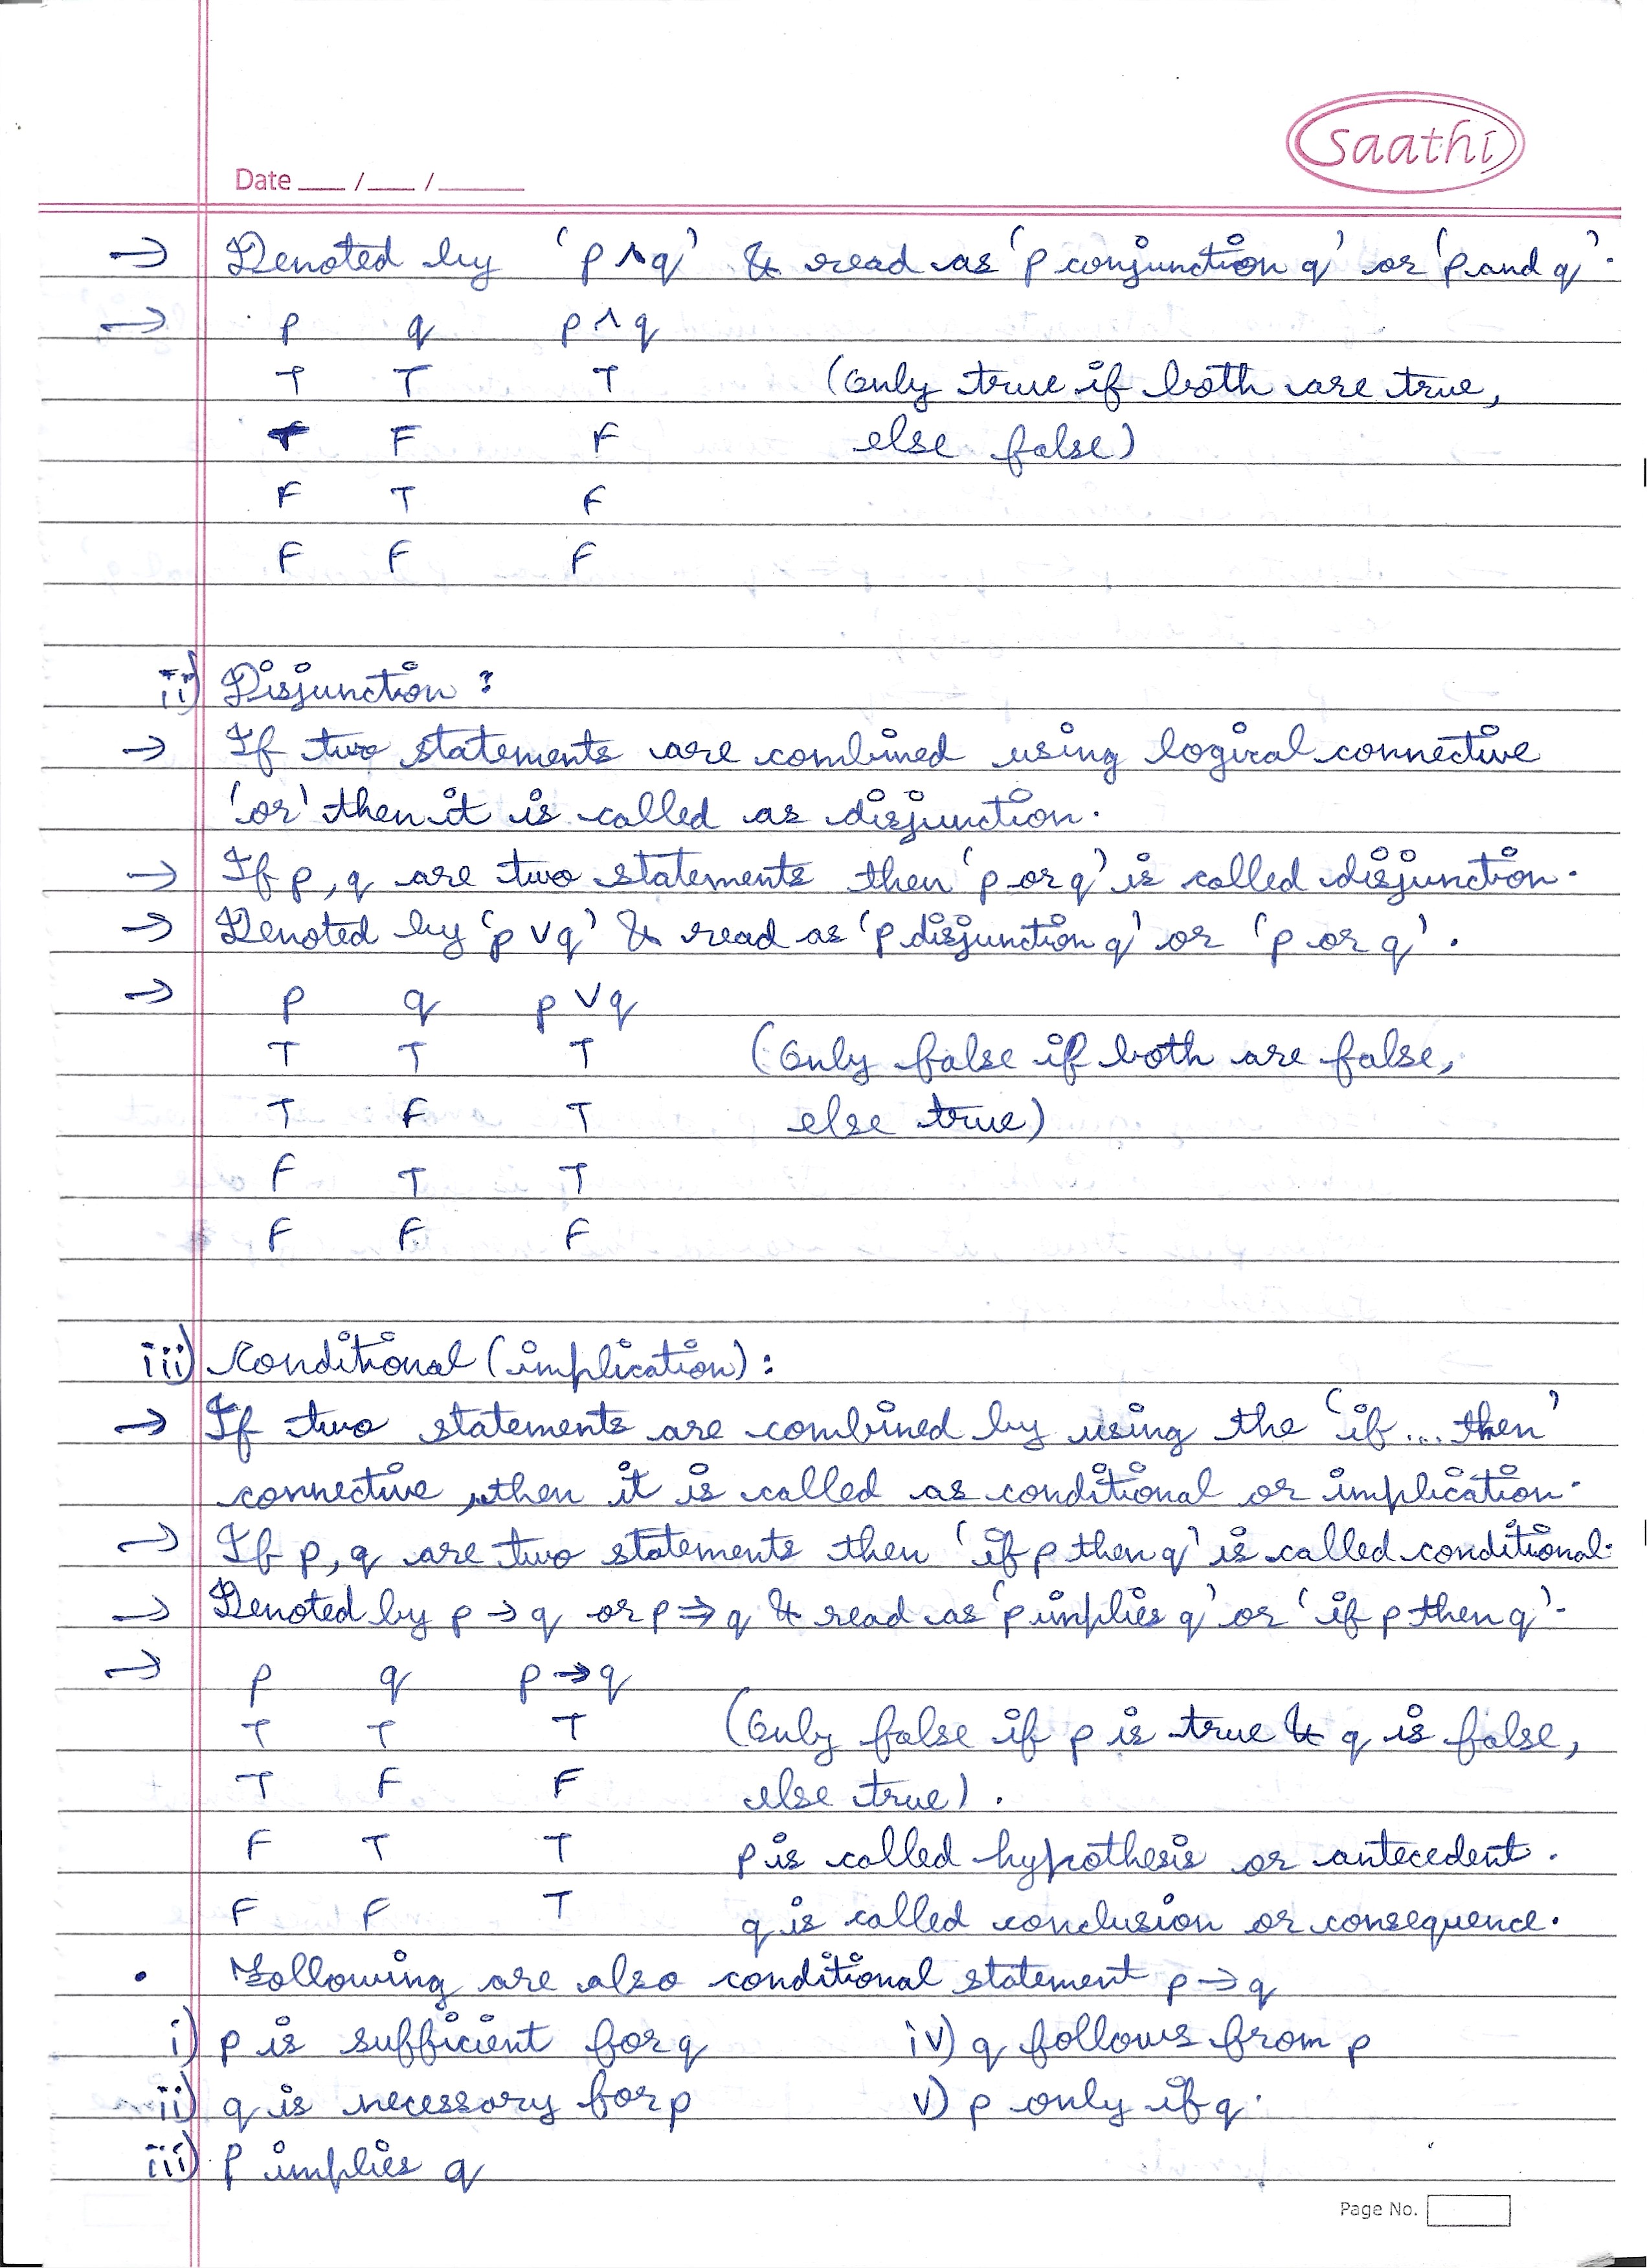 saathi
Date ___ /___ /______
→ Denoted by 'p ∧ q' & read as 'p conjunction q' or 'p and q'.
→ p q p ∧ q
T T T (Only true if both are true,
T F F else false)
F T F
F F F
ii) Disjunction :
→ If two statements are combined using logical connective
'or' then it is called as disjunction.
→ If p, q are two statements then 'p or q' is called disjunction.
→ Denoted by 'p ∨ q' & read as 'p disjunction q' or 'p or q'.
→ p q p ∨ q
T T T (Only false if both are false,
T F T else true)
F T T
F F F
iii) Conditional (implication) :
→ If two statements are combined by using the 'if ... then'
connective, then it is called as conditional or implication.
→ If p, q are two statements then 'if p then q' is called conditional.
→ Denoted by p → q or p ⇒ q & read as 'p implies q' or 'if p then q'.
→ p q p → q
T T T (Only false if p is true & q is false,
T F F else true).
F T T p is called hypothesis or antecedent.
F F T q is called conclusion or consequence.
• Following are also conditional statement p → q
i) p is sufficient for q iv) q follows from p
ii) q is necessary for p v) p only if q.
iii) P implies q
Page No.